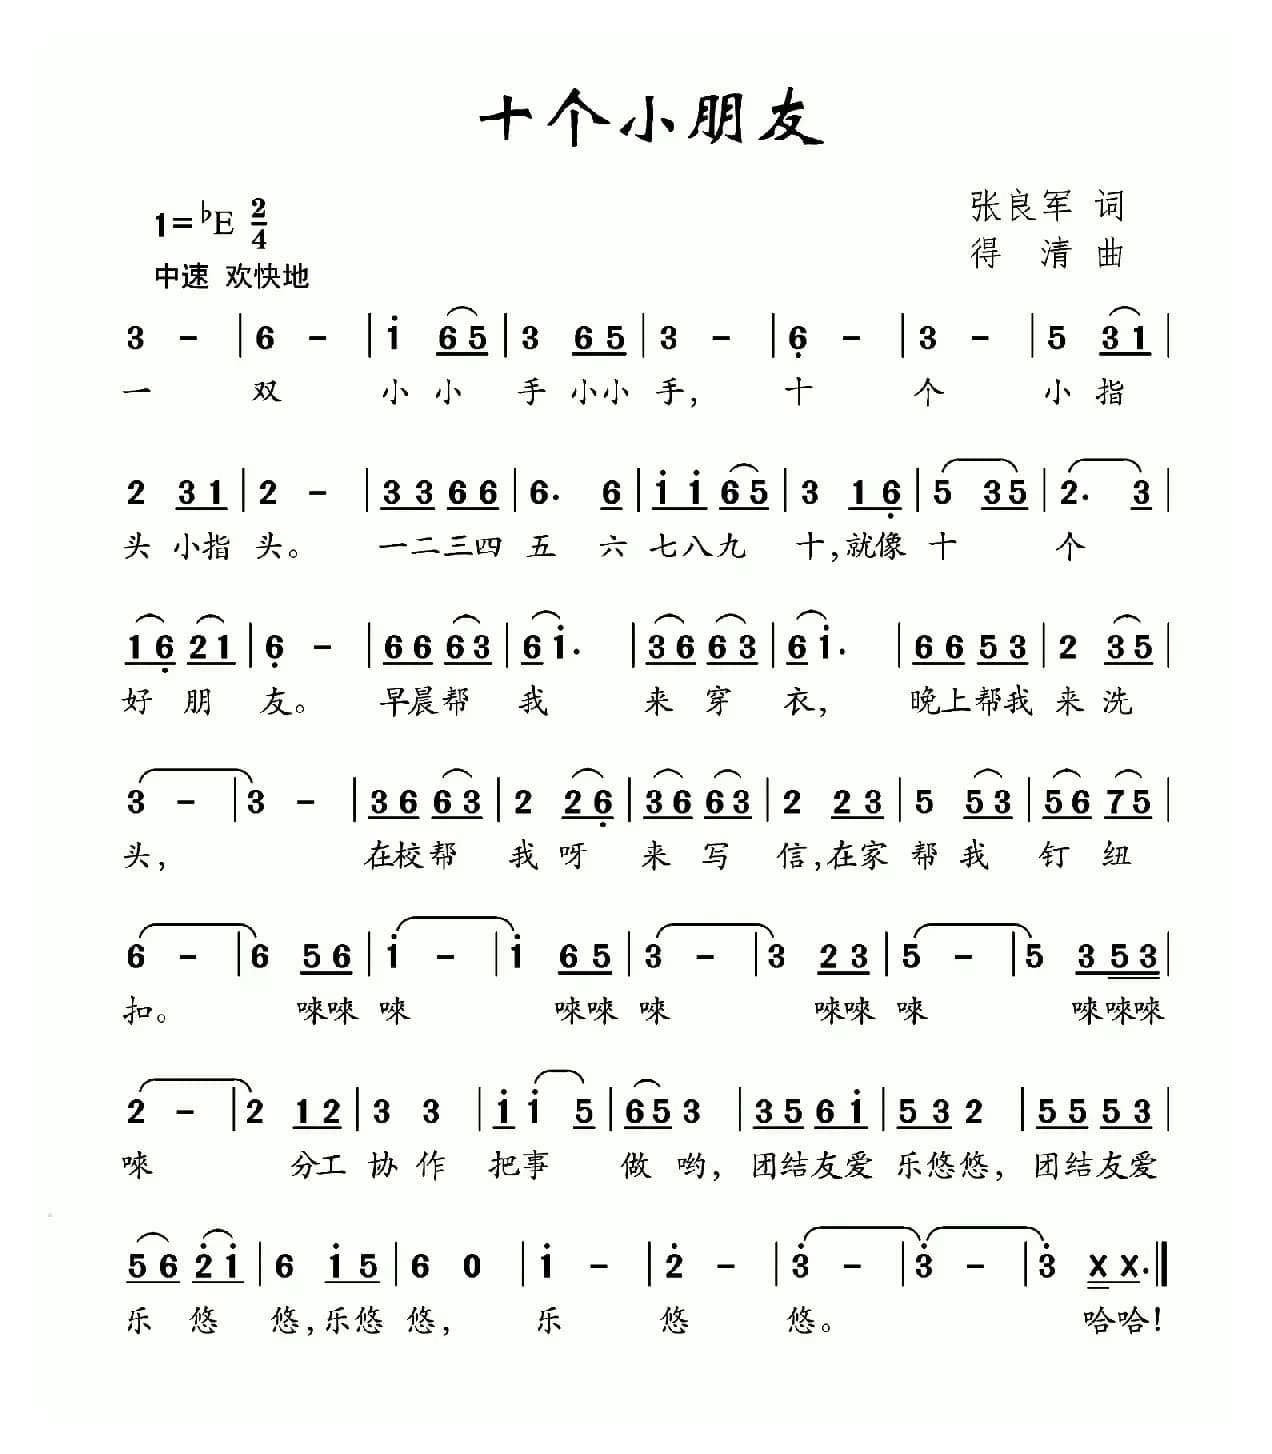 十个小朋友
张良军 词
1=♭E 2/4
得 清 曲
中速 欢快地
3 - | 6 - | i 6 5 | 3 6 5 | 3 - | 6 - | 3 - | 5 3 1 |
一 双 小 小 手 小小 手， 十 个 小 指
2 3 1 | 2 - | 3 3 6 6 | 6. 6 | i i 6 5 | 3 1 6 | 5 3 5 | 2. 3 |
头 小指 头。 一二三四 五 六 七八九 十，就像 十 个
1 6 2 1 | 6 - | 6 6 6 3 | 6 i. | 3 6 6 3 | 6 i. | 6 6 5 3 | 2 3 5 |
好 朋 友。 早晨帮 我 来 穿 衣， 晚上帮我 来 洗
3 - | 3 - | 3 6 6 3 | 2 2 6 | 3 6 6 3 | 2 2 3 | 5 5 3 | 5 6 7 5 |
头， 在校帮 我 呀 来 写 信，在家 帮 我 钉 纽
6 - | 6 5 6 | i - | i 6 5 | 3 - | 3 2 3 | 5 - | 5 3 5 3 |
扣。 唻唻 唻 唻唻 唻 唻唻 唻 唻唻唻
2 - | 2 1 2 | 3 3 | i i 5 | 6 5 3 | 3 5 6 i | 5 3 2 | 5 5 5 3 |
唻 分工 协 作 把 事 做 哟， 团结友爱 乐悠悠， 团结友爱
5 6 2 i | 6 i 5 | 6 0 | i - | 2 - | 3 - | 3 - | 3 X X. ‖
乐 悠 悠，乐悠 悠， 乐 悠 悠。 哈哈！